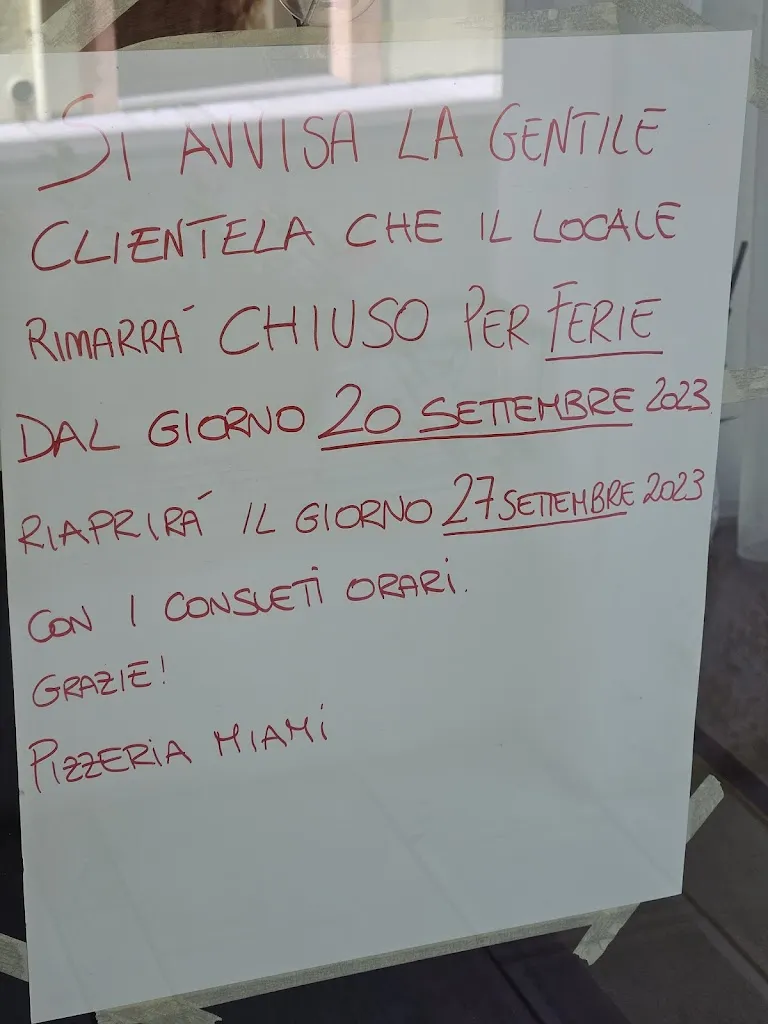 SI AVVISA LA GENTILE
CLIENTELA CHE IL LOCALE
RIMARRÁ CHIUSO PER FERIE
DAL GIORNO 20 SETTEMBRE 2023
RIAPRIRÁ IL GIORNO 27 SETTEMBRE 2023
CON I CONSUETI ORARI.
GRAZIE!
PIZZERIA MIAMI